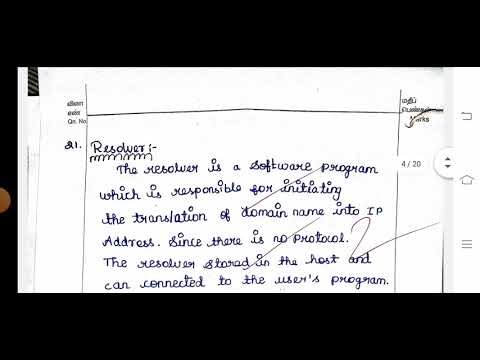 வினா
எண்
Qn. No
மதிப்
பெண்கள்
Marks
4 / 20
21. Resolver :-
The resolver is a software program
which is responsible for initiating
the translation of domain name into IP
Address. Since there is no protocol.
The resolver stored in the host and
can connected to the user's program.
2